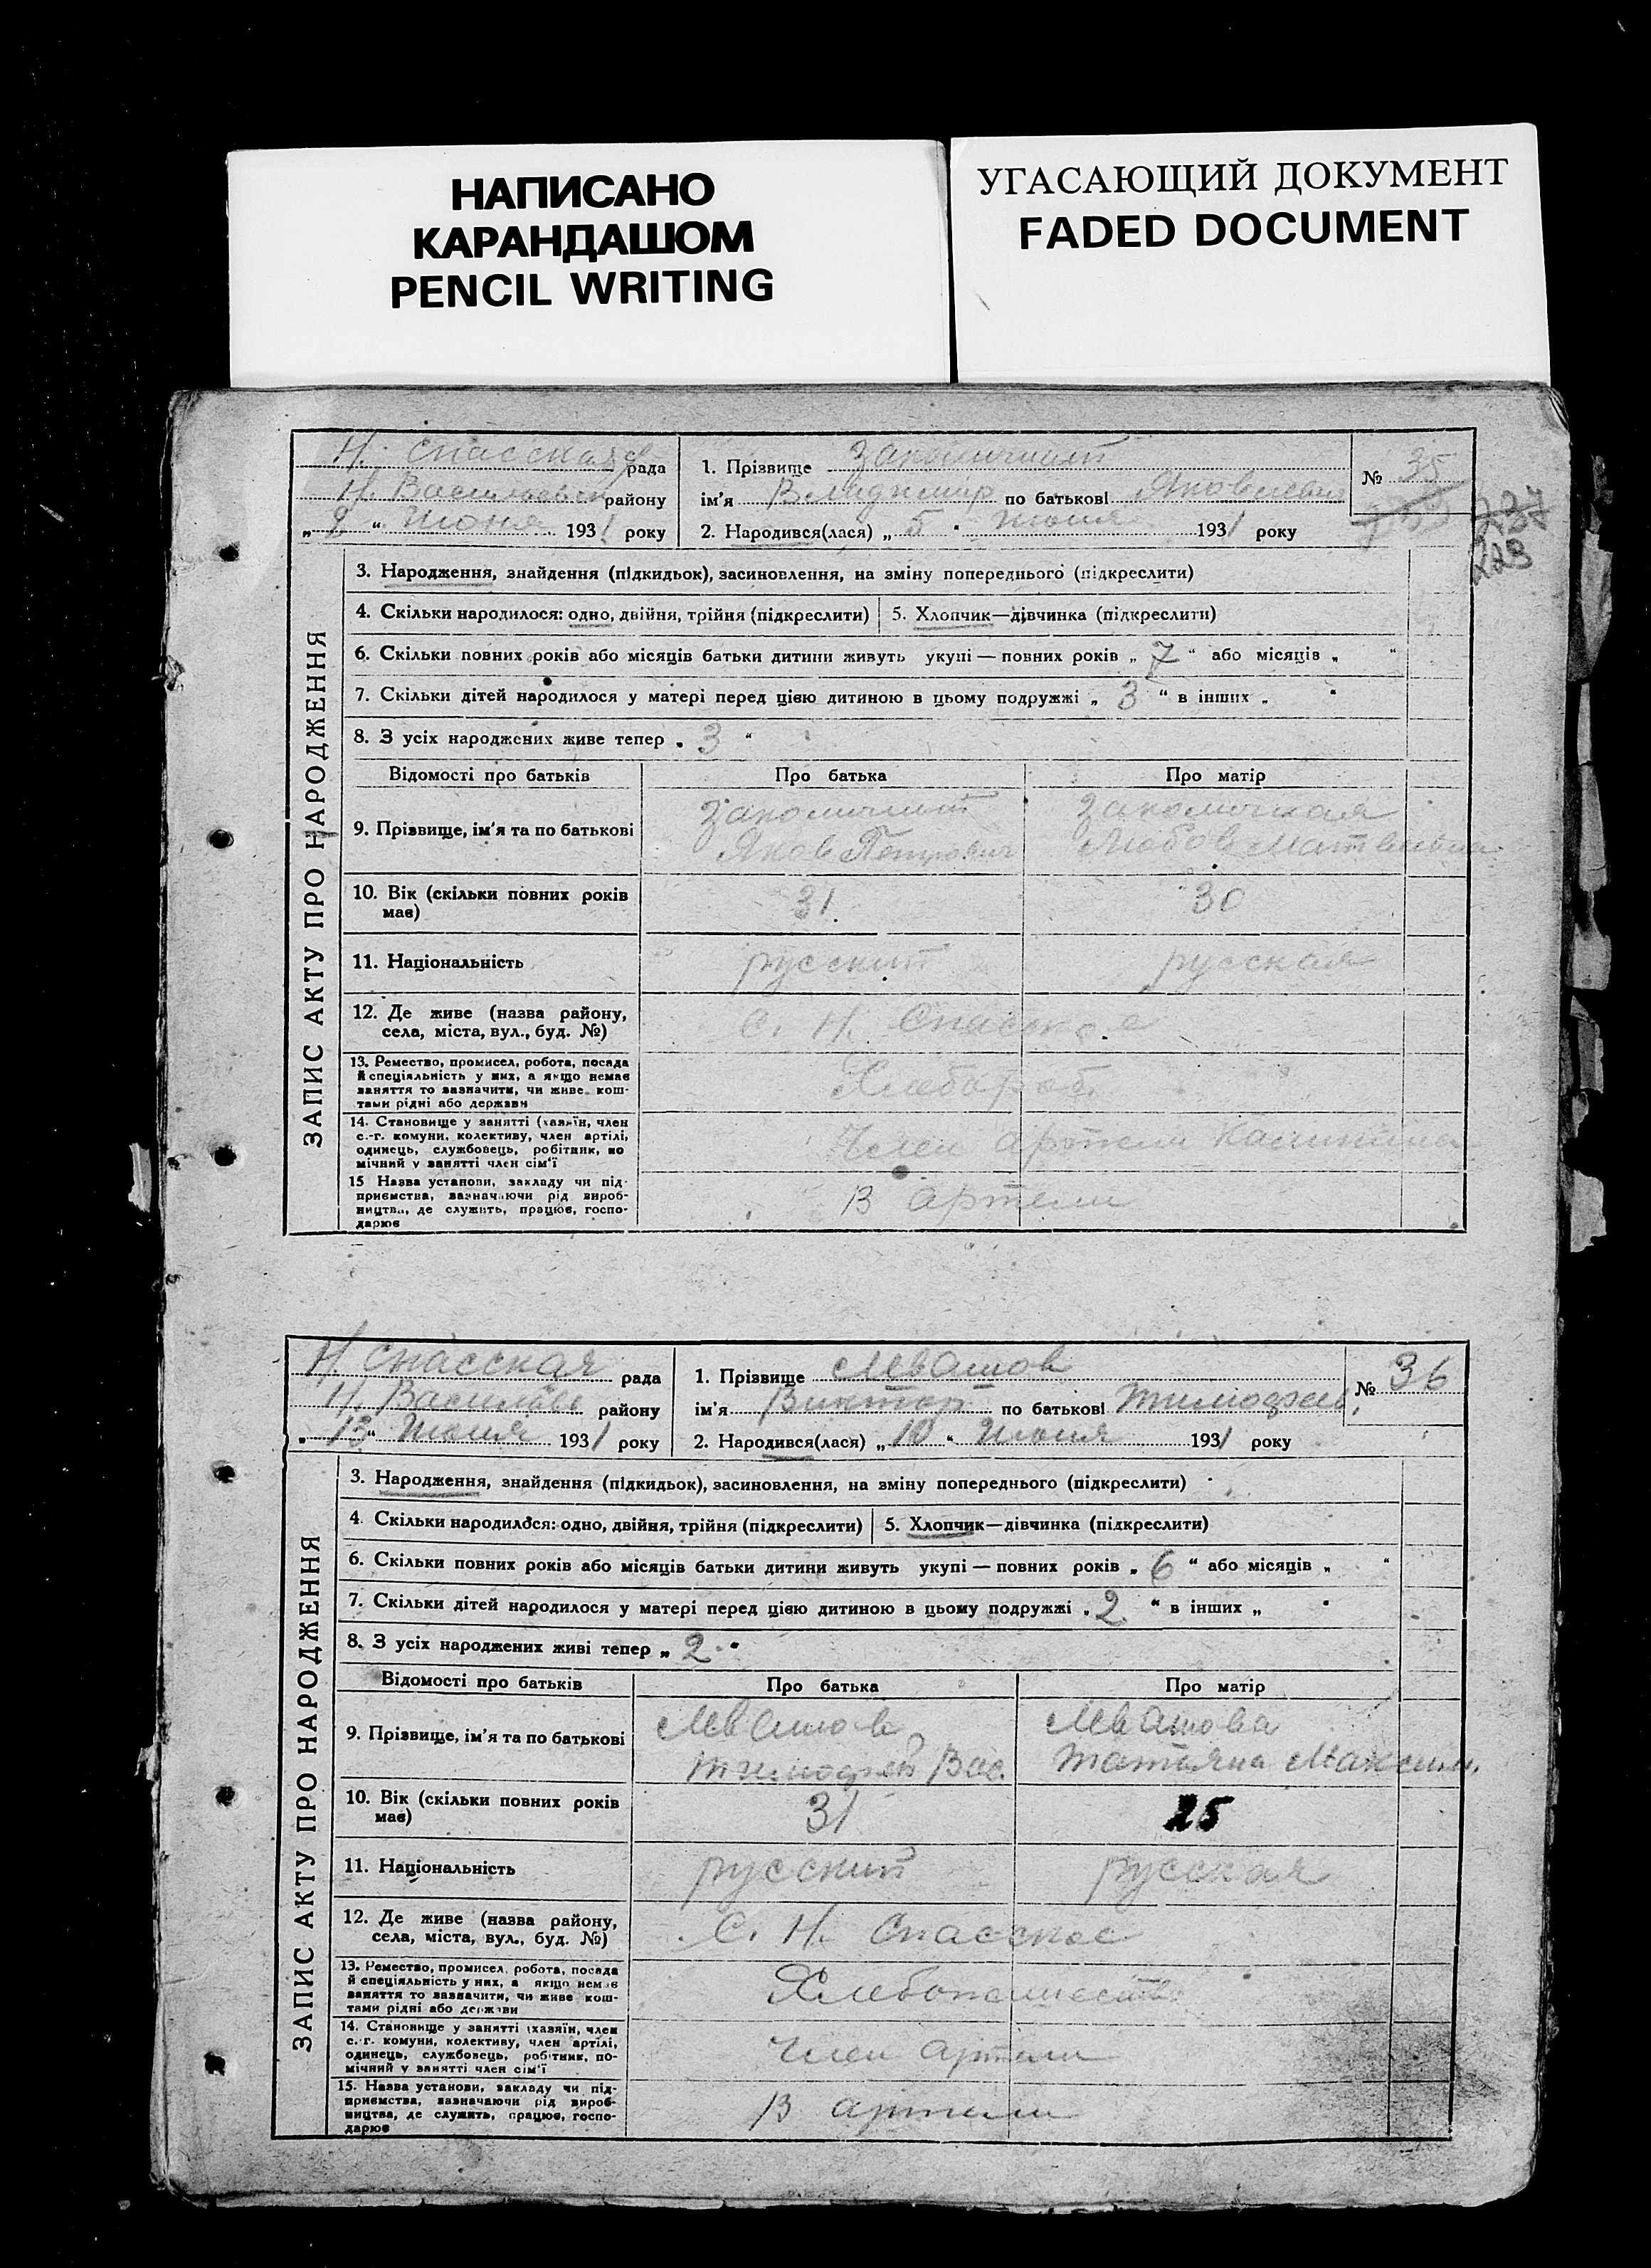 НАПИСАНО
КАРАНДАШОМ
PENCIL WRITING
УГАСАЮЩИЙ ДОКУМЕНТ
FADED DOCUMENT
Н. Спасская рада
Н. Васильевск району
„ 8 “ Июня 1931 року
1. Прізвище
ім'я Владимир по батькові Яковлевич
2. Народився(лася) „ 5 “ Июня 1931 року
№ 35
237
223
ЗАПИС АКТУ ПРО НАРОДЖЕННЯ
3. Народження, знайдення (підкидьок), засиновлення, на зміну попереднього (підкреслити)
4. Скільки народилося: одно, двійня, трійня (підкреслити)
5. Хлопчик—дівчинка (підкреслити)
6. Скільки повних років або місяців батьки дитини живуть укупі — повних років „ 7 “ або місяців „ “
7. Скільки дітей народилося у матері перед цією дитиною в цьому подружжі „ 3 “ в інших „ “
8. З усіх народжених живе тепер „ 3 “
Відомості про батьків
Про батька
Про матір
9. Прізвище, ім'я та по батькові
Яков Петрович
Любов Матвеевна
10. Вік (скільки повних років має)
31
30
11. Національність
русский
русская
12. Де живе (назва району, села, міста, вул., буд. №)
С. Н. Спасское
13. Ремество, промисел, робота, посада й спеціяльність у них, а якщо немає заняття то зазначити, чи живе коштами рідні або держави
Хлебороб
14. Становище у занятті (хазяїн, член с.-г. комуни, колективу, член артілі, одинець, службовець, робітник, помічний у занятті член сім'ї
Член артели Калинина
15 Назва установи, закладу чи підприємства, зазначаючи рід виробництва, де служить, працює, господарює
В артели
Н. Спасская рада
Н. Василівс району
„ 13 “ Июня 1931 року
1. Прізвище Ивашов
ім'я Виктор по батькові Тимофеев.
2. Народився(лася) „ 10 “ Июня 1931 року
№ 36
ЗАПИС АКТУ ПРО НАРОДЖЕННЯ
3. Народження, знайдення (підкидьок), засиновлення, на зміну попереднього (підкреслити)
4. Скільки народилося: одно, двійня, трійня (підкреслити)
5. Хлопчик—дівчинка (підкреслити)
6. Скільки повних років або місяців батьки дитини живуть укупі — повних років „ 6 “ або місяців „ “
7. Скільки дітей народилося у матері перед цією дитиною в цьому подружжі „ 2 “ в інших „ “
8. З усіх народжених живі тепер „ 2 “
Відомості про батьків
Про батька
Про матір
9. Прізвище, ім'я та по батькові
Ивашов
Тимофей Вас.
Ивашова
Татьяна Максим.
10. Вік (скільки повних років має)
31
25
11. Національність
русский
русская
12. Де живе (назва району, села, міста, вул., буд. №)
С. Н. Спасское
13. Ремество, промисел, робота, посада й спеціяльність у них, а якщо немає заняття то зазначити, чи живе коштами рідні або держави
Хлебопашест.
14. Становище у занятті (хазяїн, член с.-г. комуни, колективу, член артілі, одинець, службовець, робітник, помічний у занятті член сім'ї
Член артели
15. Назва установи, закладу чи підприємства, зазначаючи рід виробництва, де служить, працює, господарює
В артели